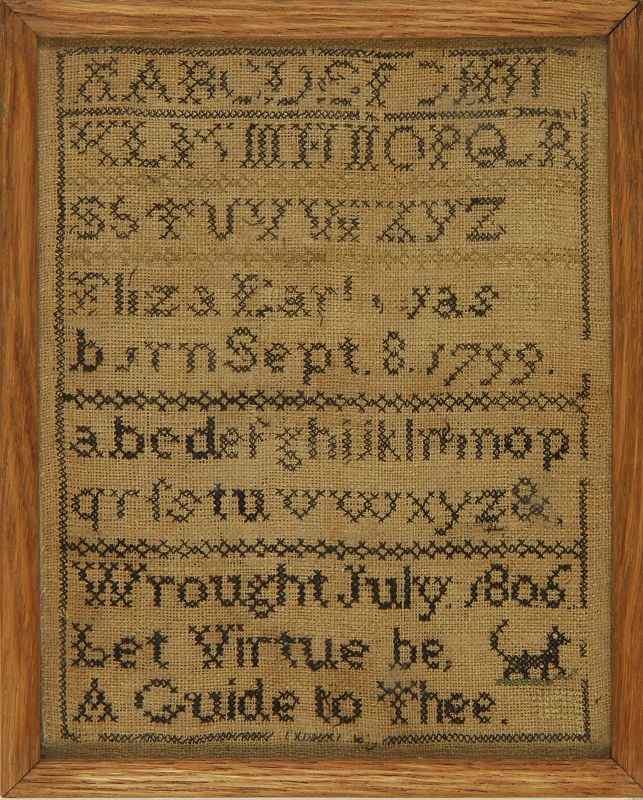 A A B C D E F G H I
O P Q R
S S T U V W X Y Z
Eliza was
born Sept. 8. 1799.
a b c d e f g h i j k l m n o p
q r ſ s t u v w x y z &.
Wrought July. 1806.
Let Virtue be,
A Guide to Thee.